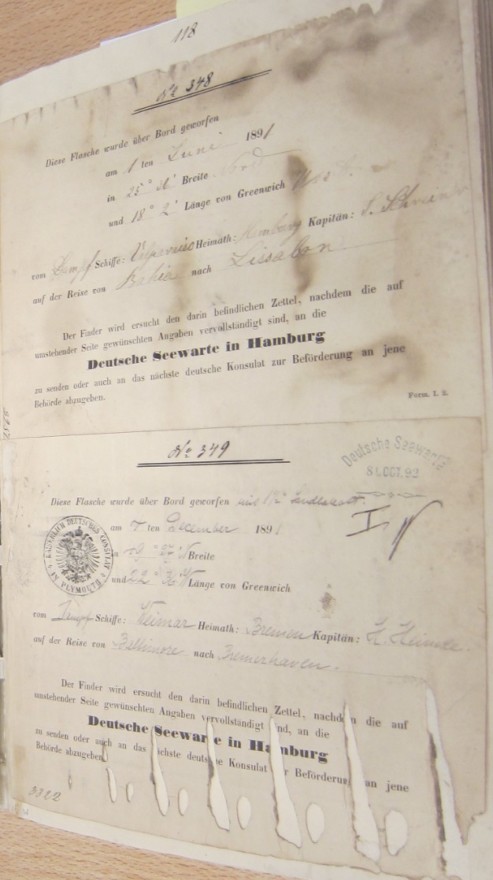 118
No 348
Diese Flasche wurde über Bord geworfen
am 1 ten Juni 1891
in 25° Breite Nord
und 18° 2' Länge von Greenwich West
vom Dampf Schiffe: Heimath: Hamburg Kapitän:
auf der Reise von Bahia nach Lissabon
Der Finder wird ersucht den darin befindlichen Zettel, nachdem die auf
umstehender Seite gewünschten Angaben vervollständigt sind, an die
Deutsche Seewarte in Hamburg
zu senden oder auch an das nächste deutsche Konsulat zur Beförderung an jene
Behörde abzugeben.
Form. I. 2.
No 349
Deutsche Seewarte
31 OCT. 92
Diese Flasche wurde über Bord geworfen
am 7 ten December 1891
Breite
und Länge von Greenwich
KAISERLICH DEUTSCHES CONSULAT PLYMOUTH
vom Dampf Schiffe: Weimar Heimath: Bremen Kapitän: H.
auf der Reise von Baltimore nach Bremerhaven.
Der Finder wird ersucht den darin befindlichen Zettel, nachdem die auf
umstehender Seite gewünschten Angaben vervollständigt nd, an die
Deutsche Seewarte in Hamburg
zu senden oder auch an das nächste deutsche Konsulat zur Beförderung an jene
Behörde abzugeben.
3302